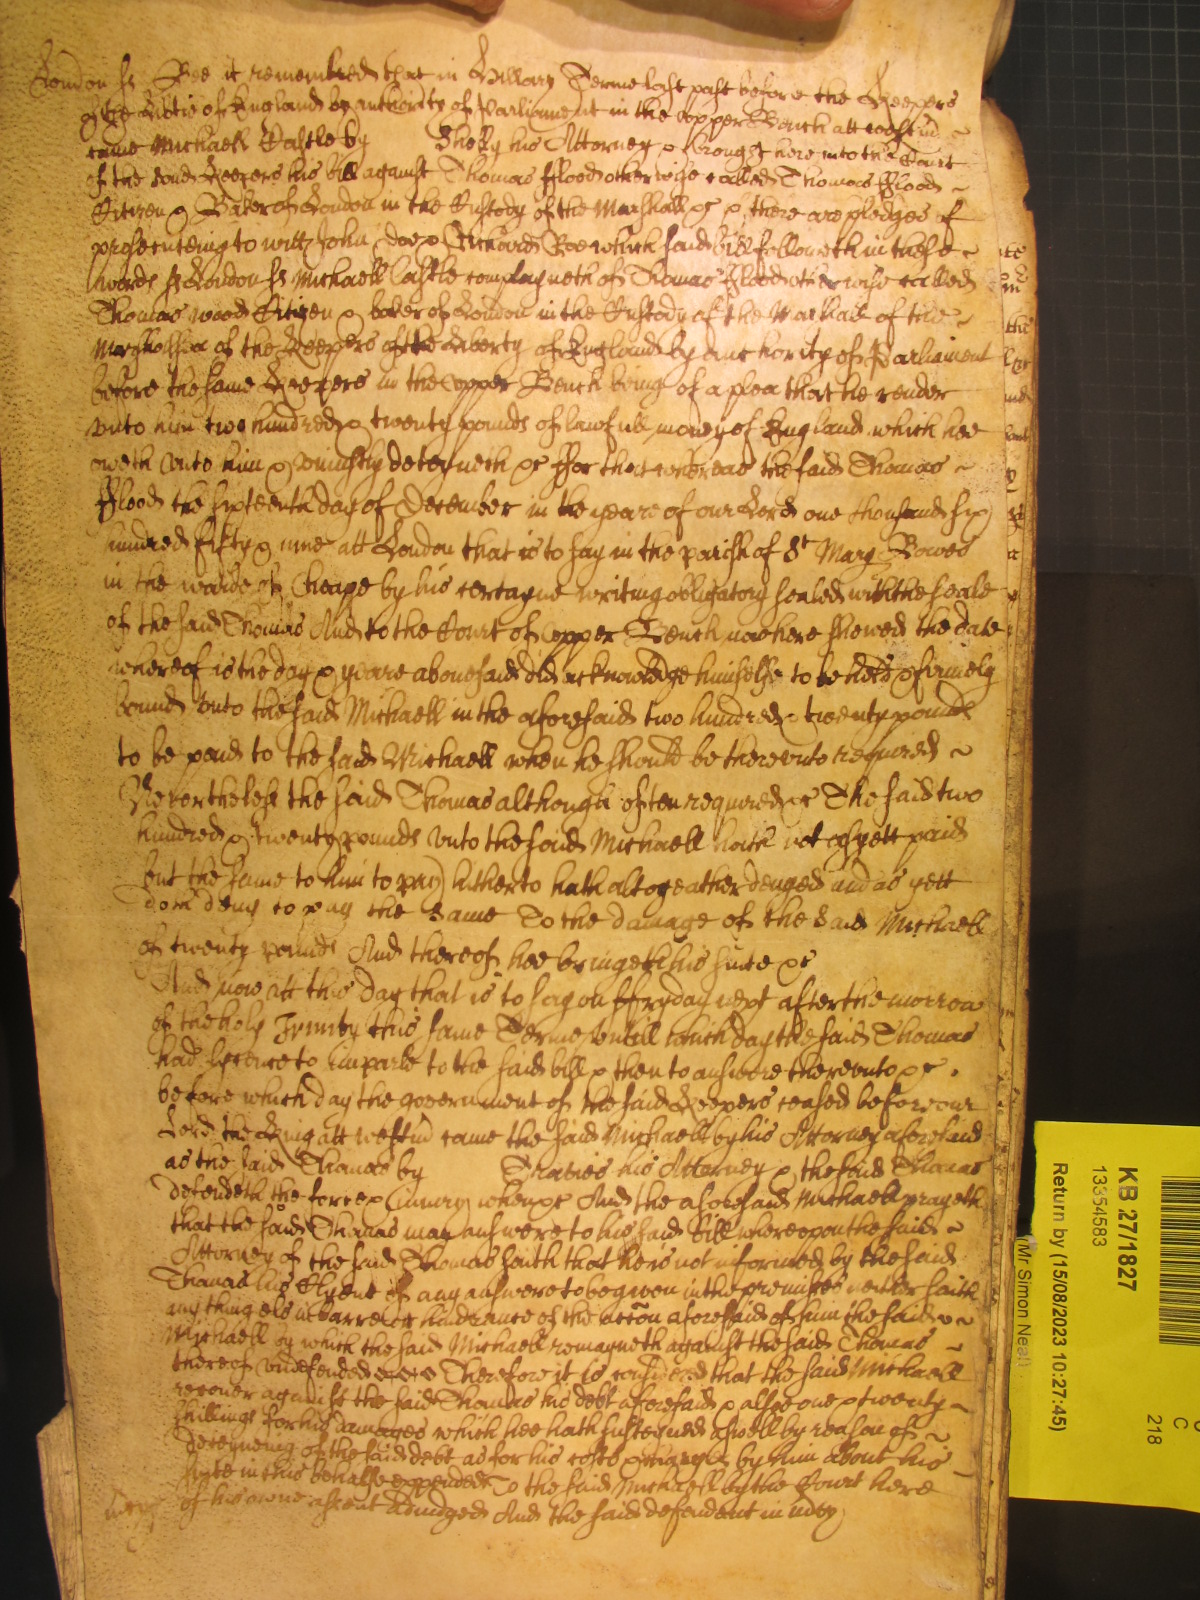 London ss Bee it remembred that in Hillary Terme last past before the Keepers
of the Libtie of England by authority of Parliament in the upper Bench att westm ~
came Michaell Castle by Shelly his Attorney & brought here into the Court
of the said Keepers his bill against Thomas fflood otherwise called Thomas fflood ~
Citizen & Baker of London in the Custody of the Marshall &c & there are pledges of
prosecuteing to witt John Doe & Richard Roe which said bill followeth in these ~
words ss London ss Michaell Castle complayneth of Thomas fflood otherwise called
Thomas wood Citizen & baker of London in the Custody of the Marshall of the ~
Marshallsea of the Keepers of the Liberty of England by authority of Parliament
before the same Keepers in the upper Bench being of a plea that he render
unto him two hundred & twenty pounds of lawfull money of England which hee
oweth unto him & uniustly deteyneth &c ffor that whereas the said Thomas ~
fflood the sixteenth day of December in the yeare of our Lord one thousand six
hundred fifty & nine att London that is to say in the parish of St Mary Bowes
in the warde of Cheape by his certayne writing obligatory sealed with the seale
of the said Thomas And to the Court of upper Bench now here shewed the date
whereof is the day & yeare abovesaid did acknowledge himselfe to be held & firmely
bound unto the said Michaell in the aforesaid two hundred & twenty pounds
to be paid to the said Michaell when he should be thereunto required ~
Neverthelesse the said Thomas although often required &c The said two
hundred & twenty pounds unto the said Michaell hath not as yett paid
but the same to him to pay hitherto hath altogeather denyed and as yett
doth deny to pay the same To the damage of the said Michaell
of twenty pounds And thereof hee bringeth his suite &c
And now att this day that is to say on ffryday next after the morrow
of the holy Trinity this same Terme untill which day the said Thomas
had lycence to imparle to the said bill & then to answere thereunto &c .
before which day the government of the said Keepers ceased before our
Lord the King att westm came the said Michaell by his Attorney aforesaid
as the said Thomas by his Attorney & the said Thomas
defendeth the force & iniury when &c And the aforesaid Michaell prayeth
that the said Thomas may answere to his said bill whereupon the said ~
Attorney of the said Thomas saith that he is not informed by the said
Thomas his Clyent of any answere to be given in the premises neither saith
any thing els in barre or hindrance of the accõn aforesaid of him the said ~
Michaell by which the said Michaell remayneth against the said Thomas ~
thereof undefended Therefore it is considered that the said Michaell
recover against the said Thomas his debt aforesaid & alsoe one & twenty ~
shillings for his damages which hee hath susteyned aswell by reason of ~
deteyneing of the said debt as for his costs & charges by him about his
suite in this behalfe expended To the said Michaell by the Court here
of his owne assent adiudged And the said defendant in mcy
mcy
KB 27/1827
13354583
Return by (15/08/2023 10:27:45)
(Mr Simon Neal)
C
218